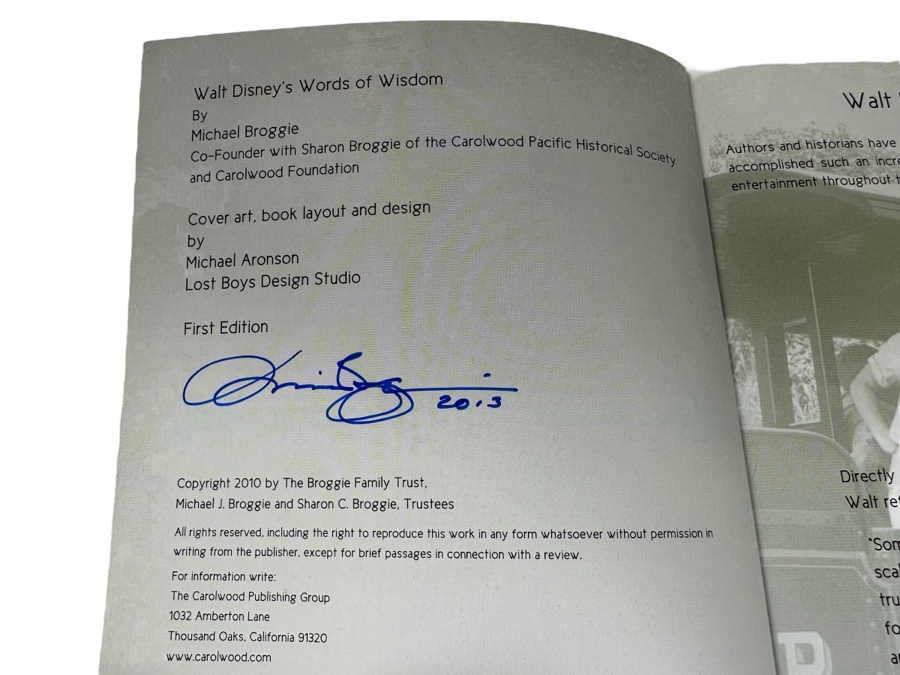 Walt Disney's Words of Wisdom
By
Michael Broggie
Co-Founder with Sharon Broggie of the Carolwood Pacific Historical Society
and Carolwood Foundation
Cover art, book layout and design
by
Michael Aronson
Lost Boys Design Studio
First Edition
2013
Copyright 2010 by The Broggie Family Trust,
Michael J. Broggie and Sharon C. Broggie, Trustees
All rights reserved, including the right to reproduce this work in any form whatsoever without permission in
writing from the publisher, except for brief passages in connection with a review.
For information write:
The Carolwood Publishing Group
1032 Amberton Lane
Thousand Oaks, California 91320
www.carolwood.com
Walt
Authors and historians have
accomplished such an
entertainment throughout
Directly
Walt